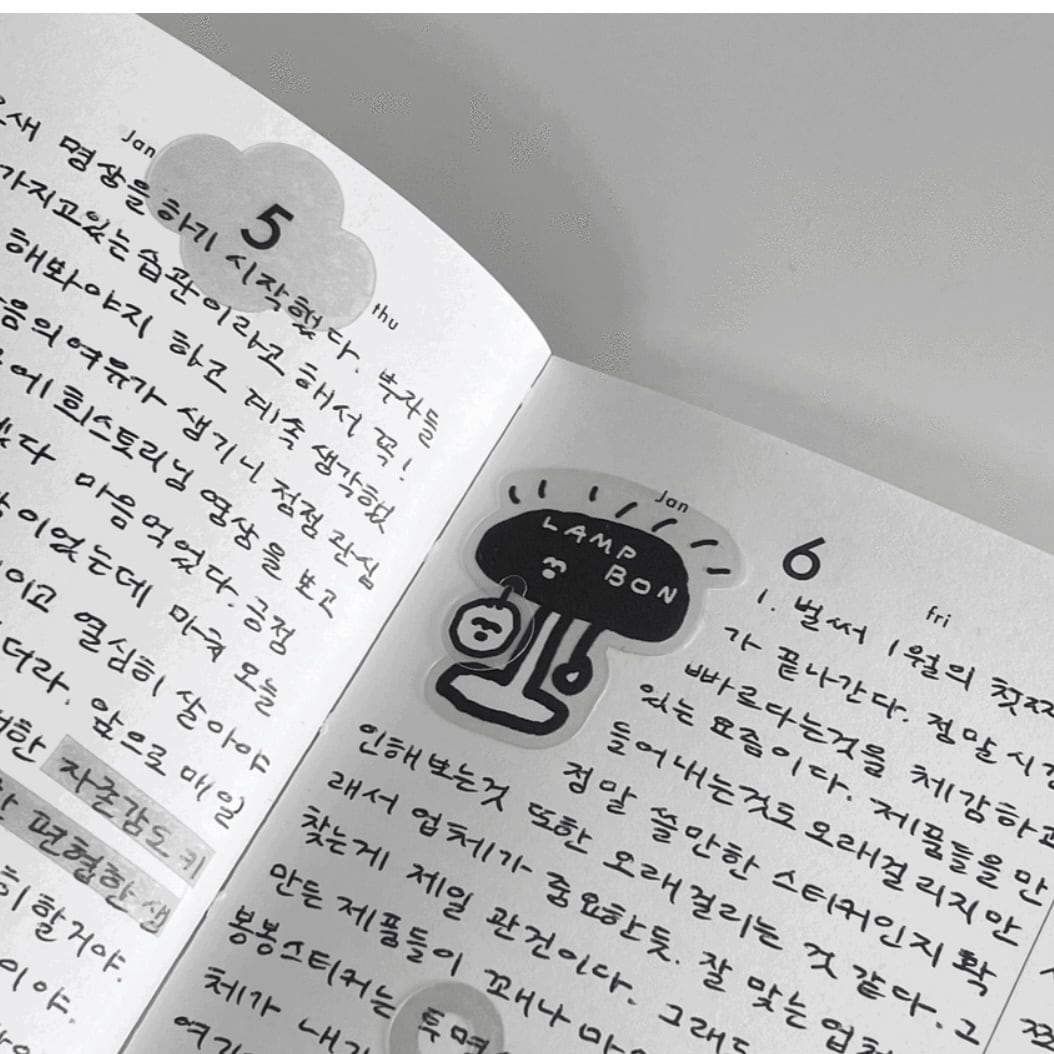 Jan
5
thu
요새 명상을 하기 시작했다. 부자들
가지고있는 습관이라고 해서 꼭!
해봐야지 하고 계속 생각했
음의 여유가 생기니 점점 관심
에 희스토리님 영상을 보고
다 마음 먹었다. 긍정
이었는데 마치 오늘
이고 열심히 살아야
더라. 앞으로 매일
한 자존감도 키
편협한 생
히 할거야.
이야.
Jan
6
fri
LAMP
BON
1. 벌써 1월의 첫째
가 끝나간다. 정말 시간
빠르다는것을 체감하고
있는 요즘이다. 제품들을 만
들어 내는것도 오래걸리지만
정말 쓸만한 스티커인지 확
인해보는것 또한 오래걸리는 것 같다. 그
래서 업체가 중요한듯. 잘 맞는 업체
찾는게 제일 관건이다. 그래도
만든 제품들이 꽤나
봉봉스티커는 투명
체가 내가